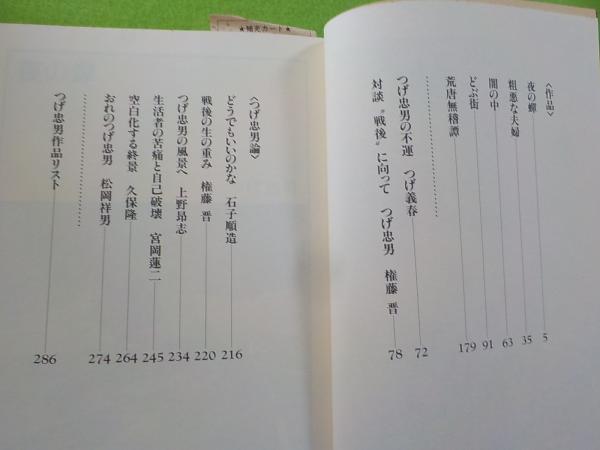 ★補充カード★
〈作品〉
夜の蟬 5
粗悪な夫婦 35
闇の中 63
どぶ街 91
荒唐無稽譚 179
つげ忠男の不運 つげ義春 72
対談 〝戦後〟に向って つげ忠男 権藤晋 78
〈つげ忠男論〉
どうでもいいのかな 石子順造 216
戦後の生の重み 権藤晋 220
つげ忠男の風景へ 上野昻志 234
生活者の苦痛と自己破壊 宮岡蓮二 245
空白化する終景 久保隆 264
おれのつげ忠男 松岡祥男 274
つげ忠男作品リスト 286